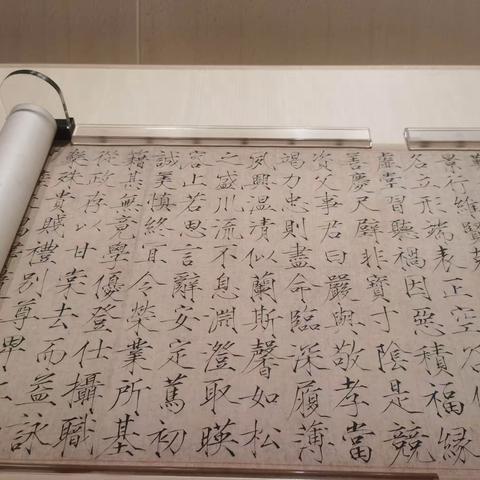 景行維賢
名立形端表正空谷
虛堂習聽禍因惡積福緣
善慶尺璧非寶寸陰是競
資父事君曰嚴與敬孝當
竭力忠則盡命臨深履薄
夙興溫凊似蘭斯馨如松
之盛川流不息淵澄取暎
容止若思言辭安定篤初
誠美慎終宜令榮業所基
籍甚無竟學優登仕攝職
從政存以甘棠去而益詠
樂殊貴賤禮別尊卑上